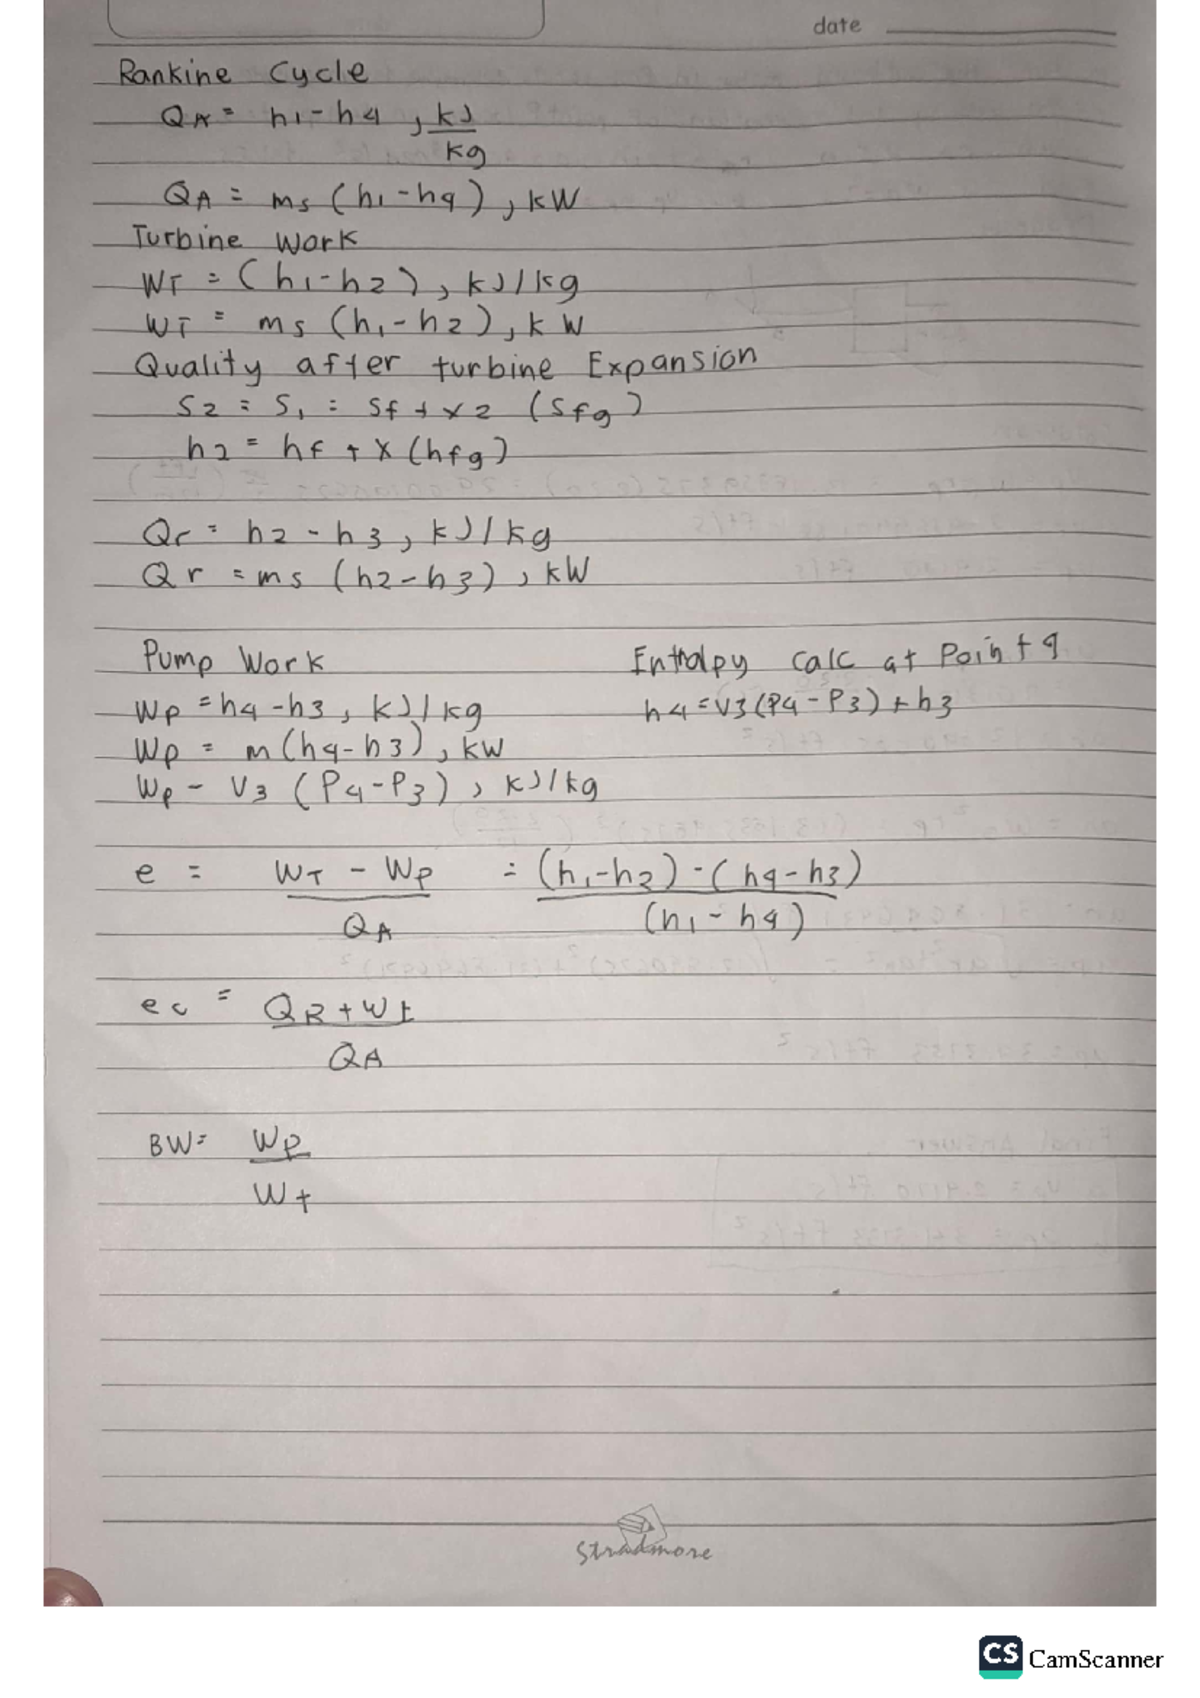 date
Rankine Cycle
QA = h1-h4 , kJ/kg
QA = ms (h1-h4) , kW
Turbine Work
WT = (h1-h2) , kJ/kg
WT = ms (h1-h2) , kW
Quality after turbine Expansion
S2 = S1 = Sf + x2 (Sfg)
h2 = hf + x (hfg)
Qr = h2 - h3 , kJ/kg
Qr = ms (h2-h3) , kW
Pump Work
Enthalpy Calc at Point 4
Wp = h4-h3 , kJ/kg
h4 = V3(P4-P3)+h3
Wp = m(h4-h3) , kW
Wp - V3 (P4-P3) , kJ/kg
e = WT - Wp / QA = (h1-h2)-(h4-h3) / (h1-h4)
ec = QR+Wt / QA
BW= Wp / Wt
Stradmore
CS CamScanner